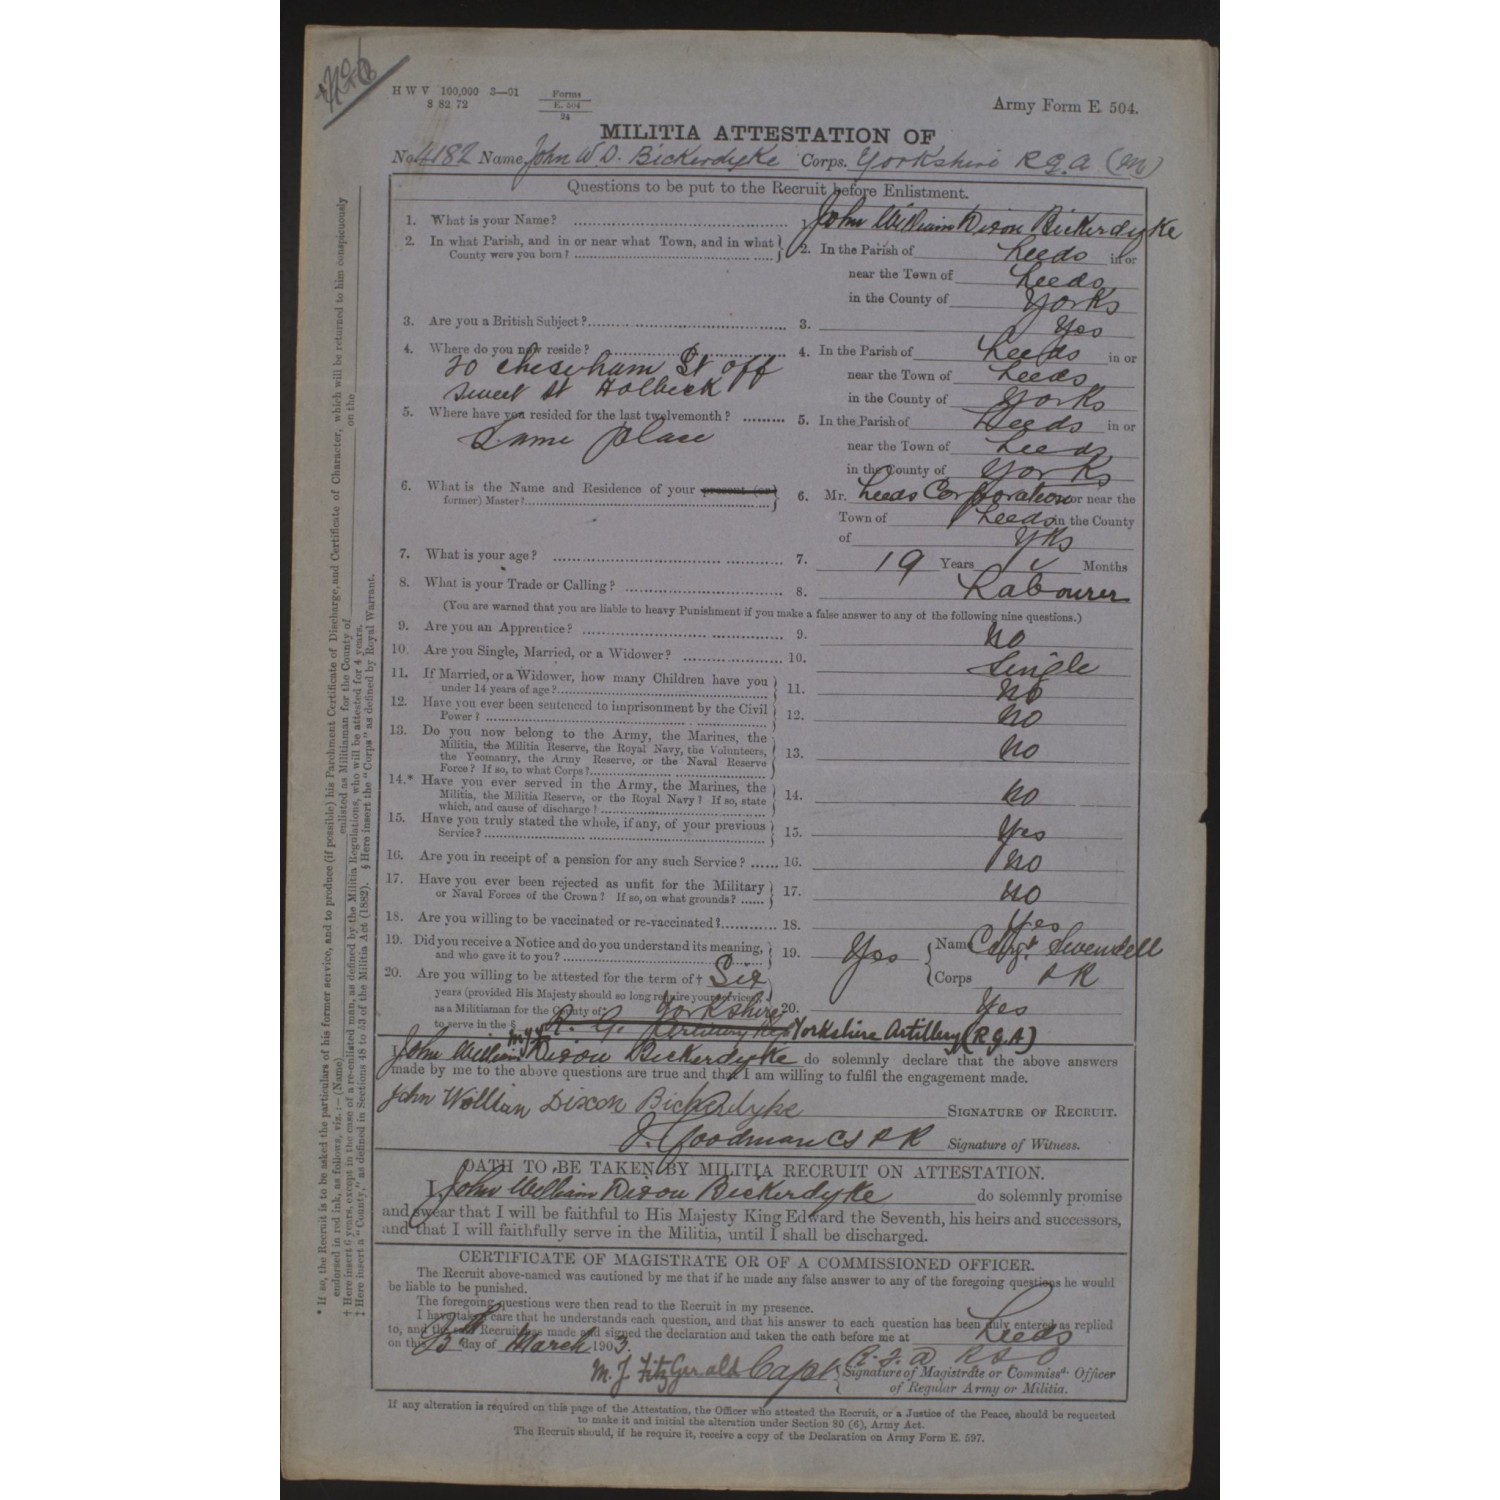 H W V 100,000 3—01 Forms
8 82 72 E. 504
24
Army Form E. 504.
MILITIA ATTESTATION OF
No. 4182 Name John W D. Bickerdyke Corps. Yorkshire R G A (M)
Questions to be put to the Recruit before Enlistment.
1. What is your Name? John William Dixon Bickerdyke
2. In what Parish, and in or near what Town, and in what County were you born? 2. In the Parish of Leeds in or
near the Town of Leeds
in the County of Yorks
3. Are you a British Subject? 3. Yes
4. Where do you now reside? 4. In the Parish of Leeds in or
20 Chesham St off near the Town of Leeds
Sweet St Holbeck in the County of Yorks
5. Where have you resided for the last twelvemonth? 5. In the Parish of Leeds in or
Same place near the Town of Leeds
in the County of Yorks
6. What is the Name and Residence of your present (or) former) Master? 6. Mr. Leeds Corporation or near the
Town of Leeds in the County
of Yks
7. What is your age? 7. 19 Years Months
8. What is your Trade or Calling? 8. Labourer
(You are warned that you are liable to heavy Punishment if you make a false answer to any of the following nine questions.)
9. Are you an Apprentice? 9. No
10. Are you Single, Married, or a Widower? 10. Single
11. If Married, or a Widower, how many Children have you under 14 years of age? 11. No
12. Have you ever been sentenced to imprisonment by the Civil Power? 12. No
13. Do you now belong to the Army, the Marines, the
Militia, the Militia Reserve, the Royal Navy, the Volunteers,
the Yeomanry, the Army Reserve, or the Naval Reserve
Force? If so, to what Corps? 13. No
14.* Have you ever served in the Army, the Marines, the
Militia, the Militia Reserve, or the Royal Navy? If so, state
which, and cause of discharge? 14. No
15. Have you truly stated the whole, if any, of your previous
Service? 15. Yes
16. Are you in receipt of a pension for any such Service? 16. No
17. Have you ever been rejected as unfit for the Military
or Naval Forces of the Crown? If so, on what grounds? 17. No
18. Are you willing to be vaccinated or re-vaccinated? 18. Yes
19. Did you receive a Notice and do you understand its meaning,
and who gave it to you? 19. Yes Name Swendell
Corps A R
20. Are you willing to be attested for the term of † Six
years (provided His Majesty should so long require your services)
as a Militiaman for the County of‡ Yorkshire 20. Yes
to serve in the § R. G. Artillery Yorkshire Artillery (R G A)
I John William Dixon Bickerdyke do solemnly declare that the above answers
made by me to the above questions are true and that I am willing to fulfil the engagement made.
John Willian Dixon Bickerdyke SIGNATURE OF RECRUIT.
J. Goodman CS A R Signature of Witness.
OATH TO BE TAKEN BY MILITIA RECRUIT ON ATTESTATION.
I John William Dixon Bickerdyke do solemnly promise
and swear that I will be faithful to His Majesty King Edward the Seventh, his heirs and successors,
and that I will faithfully serve in the Militia, until I shall be discharged.
CERTIFICATE OF MAGISTRATE OR OF A COMMISSIONED OFFICER.
The Recruit above-named was cautioned by me that if he made any false answer to any of the foregoing questions he would
be liable to be punished.
The foregoing questions were then read to the Recruit in my presence.
I have taken care that he understands each question, and that his answer to each question has been duly entered as replied
to, and the said Recruit has made and signed the declaration and taken the oath before me at Leeds
on this day of March 1903.
M. J. FitzGerald Capt R. F. A R S O
Signature of Magistrate or Commissd. Officer
of Regular Army or Militia.
If any alteration is required on this page of the Attestation, the Officer who attested the Recruit, or a Justice of the Peace, should be requested
to make it and initial the alteration under Section 80 (6), Army Act.
The Recruit should, if he require it, receive a copy of the Declaration on Army Form E. 597.
* If so, the Recruit is to be asked the particulars of his former service, and to produce (if possible) his Parchment Certificate of Discharge, and Certificate of Character, which will be returned to him conspicuously
endorsed in red ink, as follows, viz.:— (Name) enlisted as Militiaman for the County of on the
† Here insert 6 years, except in the case of a re-enlisted man, as defined by the Militia Regulations, who will be attested for 4 years.
‡ Here insert a "County," as defined in Sections 48 to 53 of the Militia Act (1882). § Here insert the "Corps" as defined by Royal Warrant.